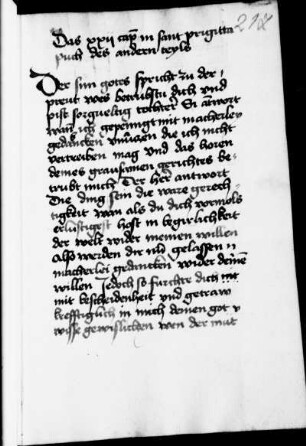 218
Das xxii cap in sant prigitta
puch des andern teyls
Der sun gotes spricht zu der
preut wes betrubstu dich und
pist sorgueltig tochter Si antwort
wan ich gepeinigt mit macherley
gedancken unnutzen die ich nicht
vertreiben mag und das horen
deines grausamen gerichtes be-
trubt mich Der her antwort
Die ding sein die ware gerech-
tigkeit wan als du dich vormols
erlustigest hast in begirlichkeit
der welt wider meinen willen
Also werden dir nu gelassen
macherlei gedancken wider deinen
willen Jedoch so furchte dich
mit bescheidenheit und getraw
krefftiglich in mich deinen got
wisse gewislichen wen der mut